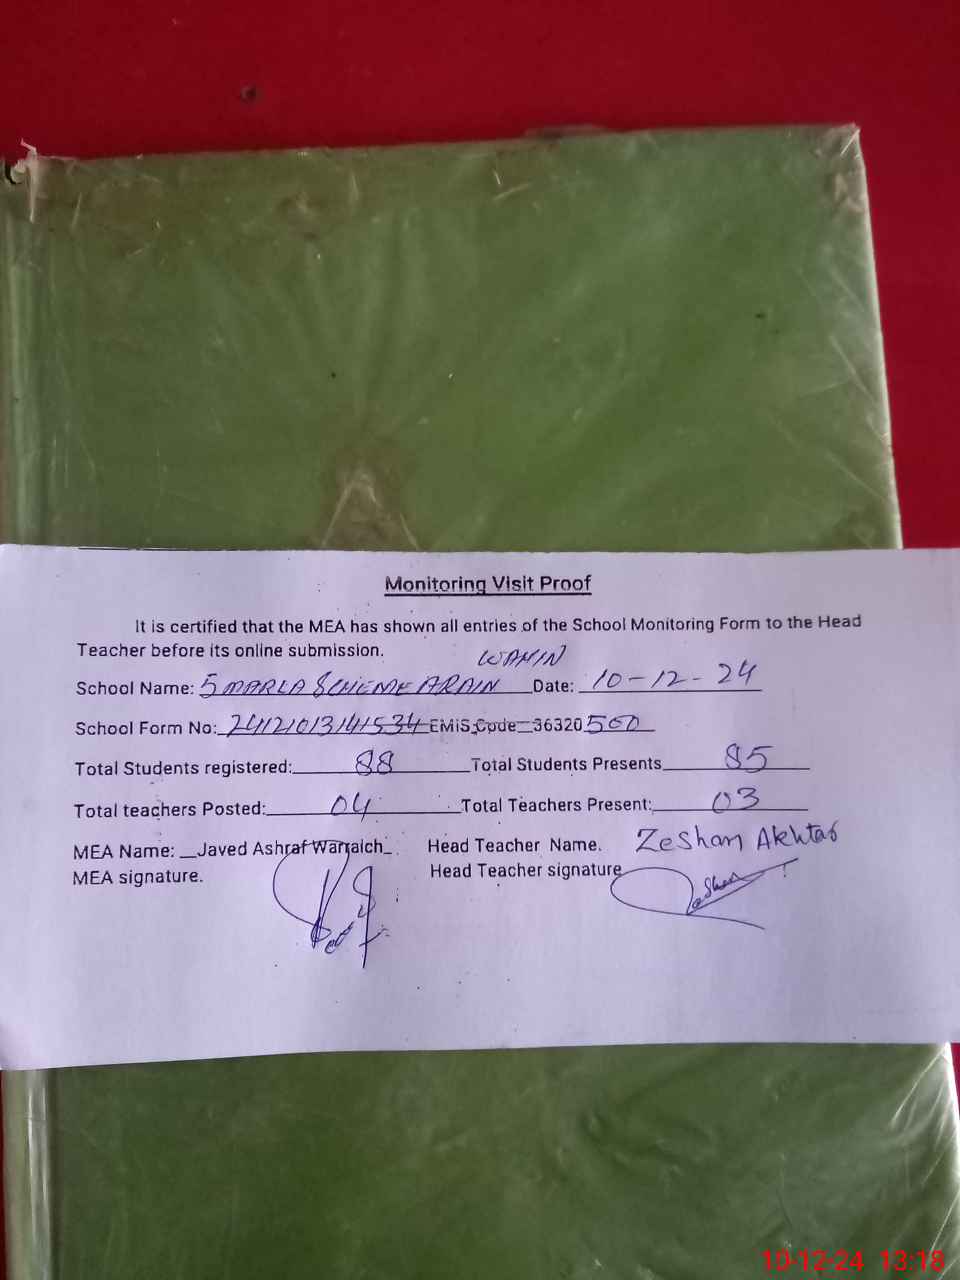 Monitoring Visit Proof
It is certified that the MEA has shown all entries of the School Monitoring Form to the Head
Teacher before its online submission.
WAHIN
School Name: 5 MARLA SCHEME ARAIN Date: 10-12-24
School Form No: 24121013141534 EMIS Code 36320500
Total Students registered: 88 Total Students Presents 85
Total teachers Posted: 04 Total Teachers Present: 03
MEA Name: Javed Ashraf Warraich Head Teacher Name. Zeshan Akhtar
MEA signature. Head Teacher signature
10-12-24 13:18